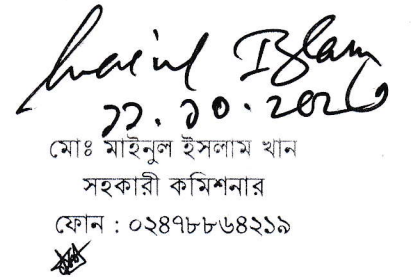 Mainul Islam
মোঃ মাইনুল ইসলাম খান
সহকারী কমিশনার
ফোন : ০২৪৭৮৮৬৪২১৯